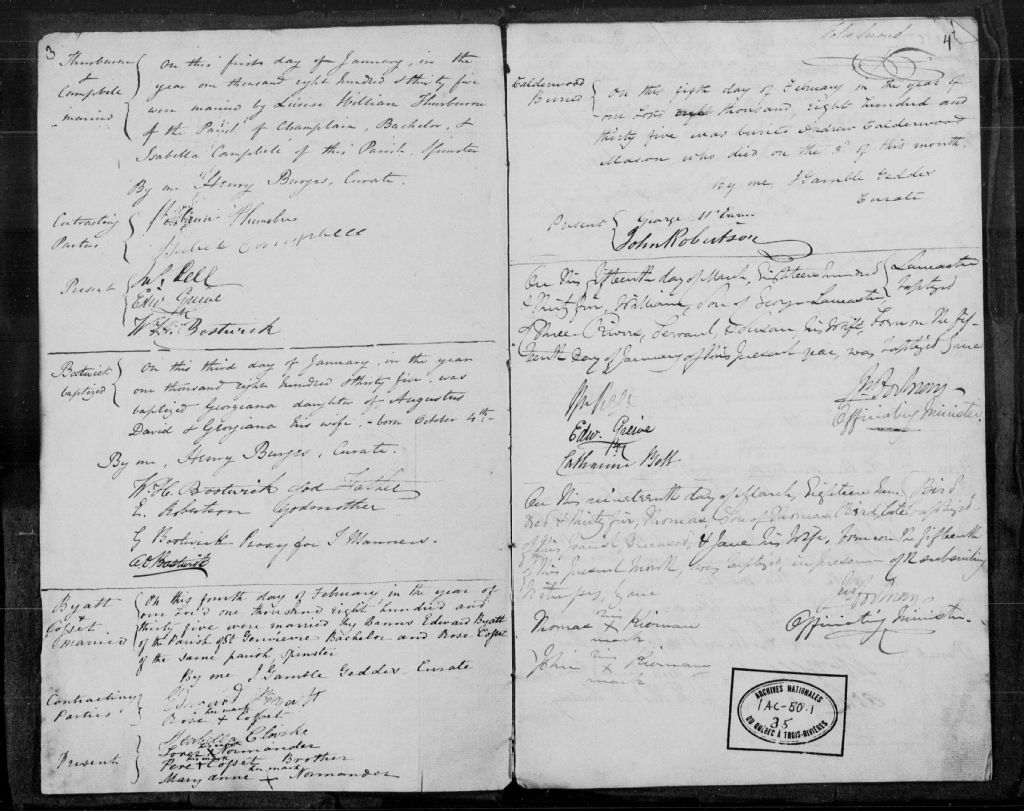 3
Thurburne
&
Campbell
married
On this first day of January, in the
year one thousand eight hundred & thirty five
were married by License William Thurburne
of the Parish of Champlain, Bachelor, &
Isabella Campbell of this Parish, Spinster
By me, Henry Burges, Curate.
Contracting
Parties
Campbell
Present
Bell
Edw. Greive
W. H. Bostwick
Bostwick
baptized
On this third day of January, in the year
one thousand eight hundred & thirty five, was
baptized Georgiana daughter of Augustus
David & Georgiana his wife, - born October 4th -
By me, Henry Burges, Curate.
W. H. Bostwick God Father
E. Robertson Godmother
G Bostwick Proxy for J Manners.
Bostwick
Byatt
&
Cosset
married
On this fourth day of February, in the year of
our Lord one thousand eight hundred and
thirty five were married by Banns Edward Byatt
of the Parish of St Genevieve Bachelor and Rose Cosset
of the same parish, Spinster
By me J Gamble Geddes Curate
Contracting
Parties
Edward Byatt
her mark
Rose + Cosset
Present
Clarke
his mark
+ Normander
his mark
Pere + Cosset Brother
her mark
Mary anne + Normander
4
Calderwood
Buried
On this fifth day of February in the year of
our Lord one thousand, eight hundred and
thirty five, was buried Andrew Calderwood
Mason who died on the 3d of this month.
By me, J Gamble Geddes
Curate
Present
George
John Robertson
On this fifteenth day of March, Eighteen hundred
& thirty five, William, Son of George Lancaster
Lancaster
baptized
of Three Rivers, Servant & Susan his Wife, born on the fif-
teenth day of January of this present year, was baptized by me
Officiating Minister.
Edw. Greive
Catharine Bell
On this nineteenth day of March, Eighteen hun
dred & thirty five, Thomas, Son of Thomas Bird, late
Bird
baptized
of this Parish, Deceased, & Jane his Wife, born on the fifteenth
of this present month, was baptized, in presence of the subscribing
Witnesses, by me
Officiating Minister.
Thomas X Kiernan
mark
his
John X Kiernan
mark
ARCHIVES NATIONALES
1AC-50.1
35
DU QUÉBEC À TROIS-RIVIÈRES